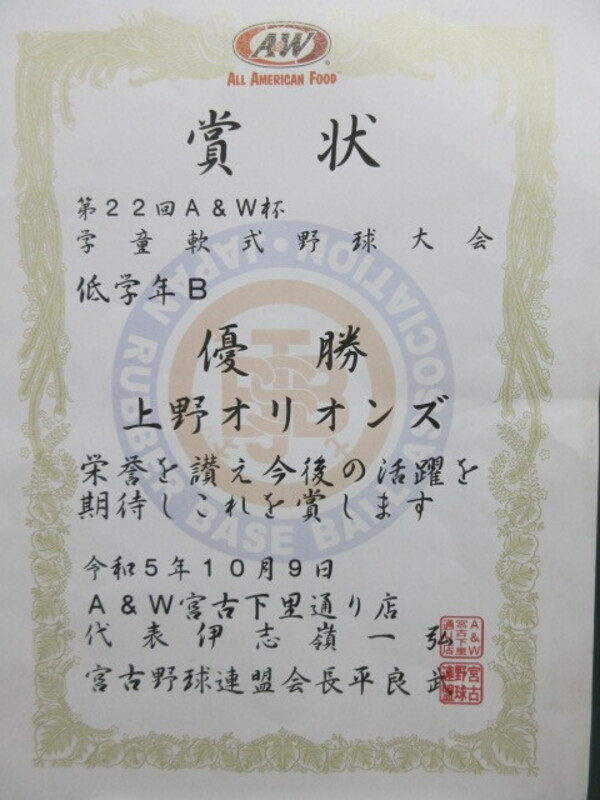 A&W
ALL AMERICAN FOOD
賞状
第22回A&W杯
学童軟式野球大会
低学年B
優勝
上野オリオンズ
栄誉を讃え今後の活躍を
期待しこれを賞します
令和5年10月9日
A&W宮古下里通り店
代表伊志嶺一弘
宮古野球連盟会長平良武
JAPAN RUBBER BASE BALL ASSOCIATION
A&W宮古下里通り店
宮古野球連盟